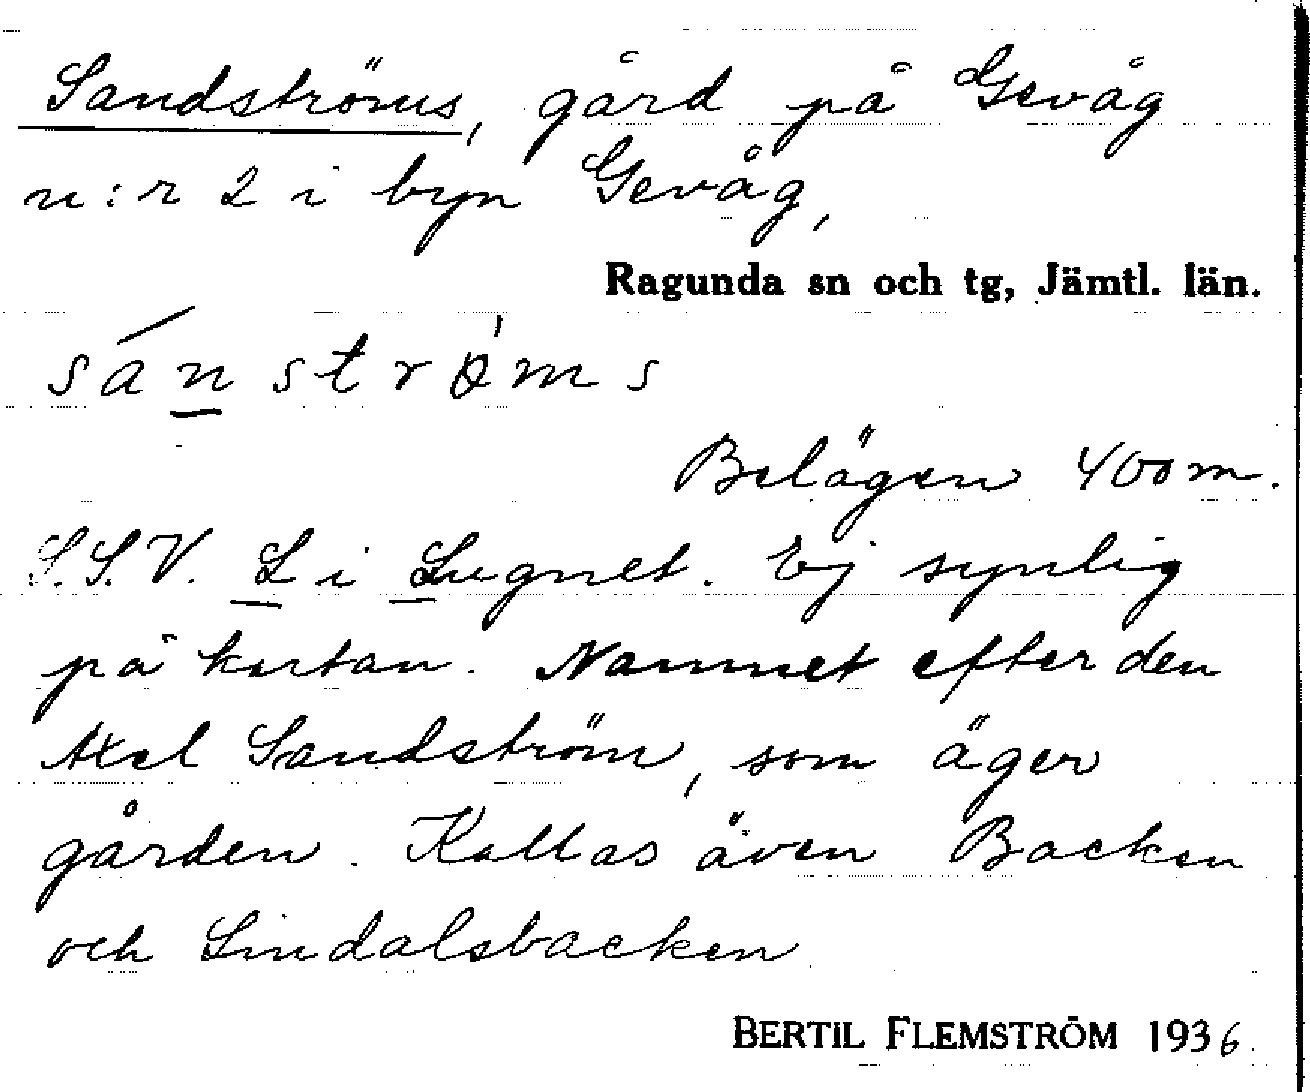 Sandströms, gård på Gevåg
n:r 2 i byn Gevåg,
Ragunda sn och tg, Jämtl. län.
sánstrøms
Belägen 400 m.
S.S.V. L i Lugnet. Ej synlig
på kartan. Namnet efter den
Axel Sandström, som äger
gården. Kallas även Backen
och Lindalsbacken
BERTIL FLEMSTRÖM 1936.